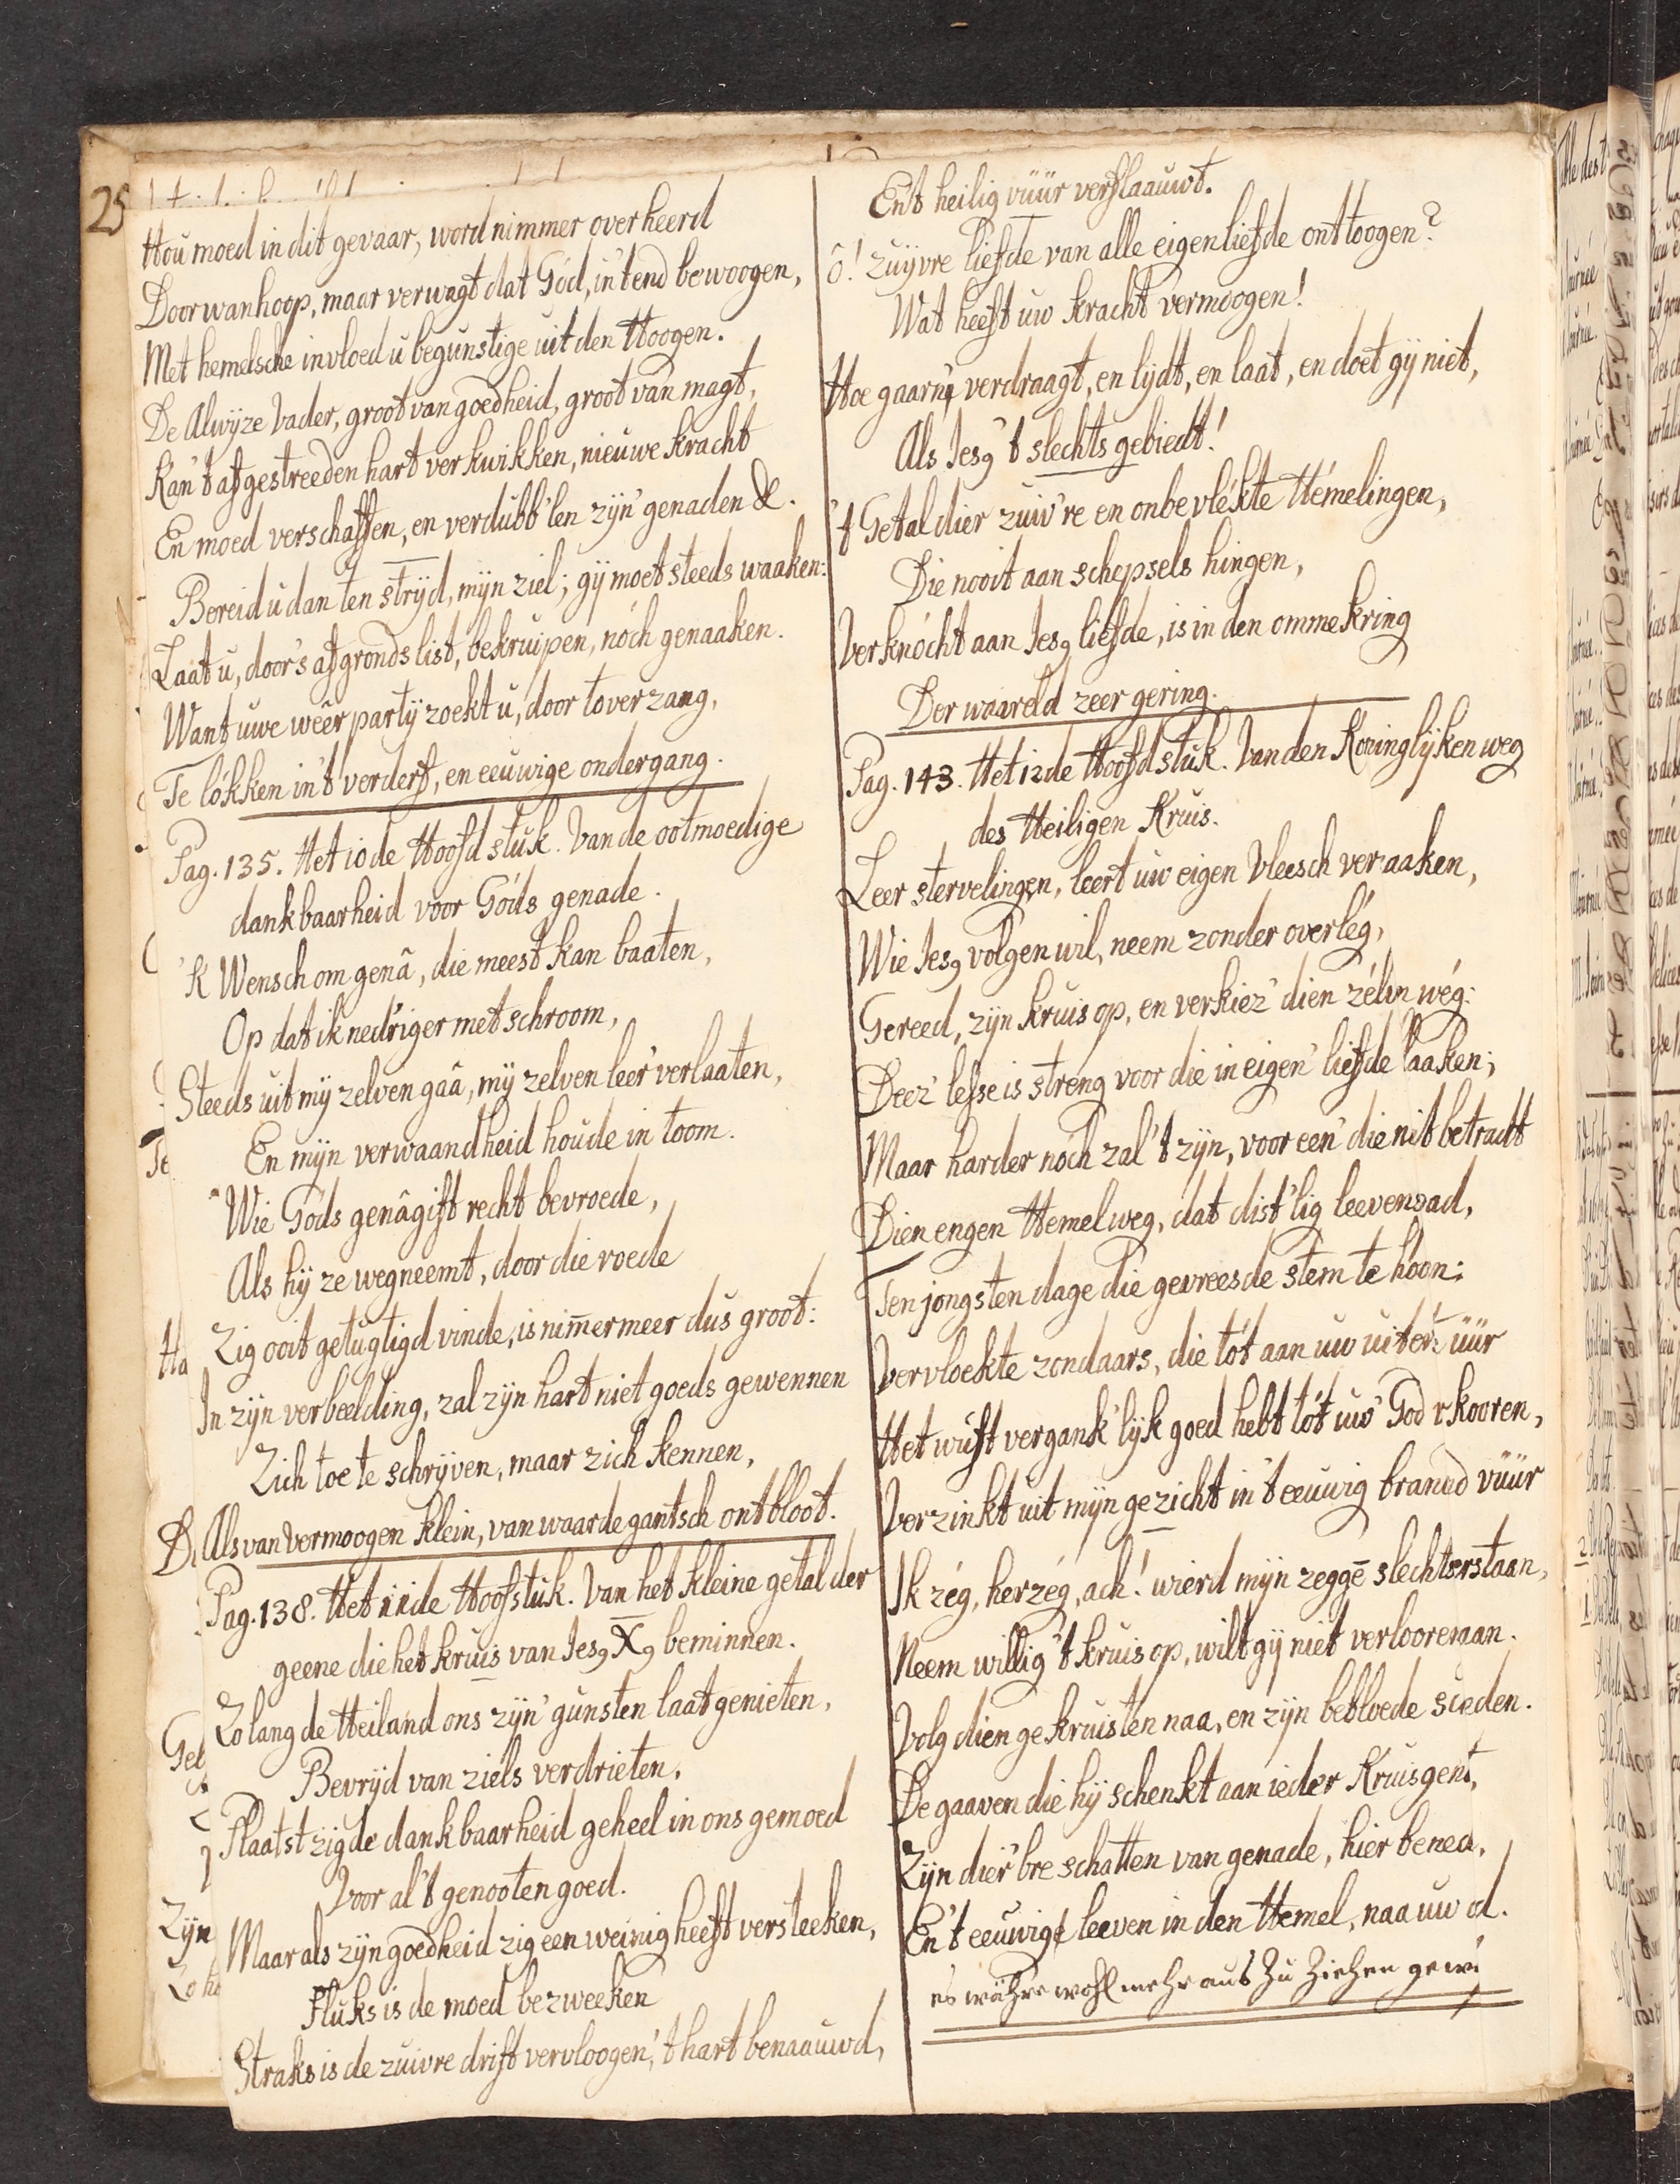 25
Hou moed in dit gevaar, word nimmer overheerd
Door wanhoop, maar verwagt dat Gód, in 't end bewoogen,
Met hemelsche invloed u begunstige uit den Hoogen.
De Alwijze Vader, groot van goedheid, groot van magt,
Kan 't afgestreeden hart verkwikken, nieuwe kracht
En moed verschaffen, en verdubb'len zijn' genaden &.
Bereid u dan ten strijd, mijn ziel; gij moet steeds waaken:
Laat u, door 's afgronds list, bekruipen, nóch genaaken.
Want uwe wêerpartij zoekt u, door toverzang,
Te lókken in 't verderf, en eeuwige ondergang.
Pag. 135. Het 10de Hoofdstuk. Van de ootmoedige
dankbaarheid voor Góds genade.
'K Wensch om genâ, die meest kan baaten,
Op dat ik nedriger met schroom,
Steeds uit mij zelven gaâ, mij zelven leer' verlaaten,
En mijn verwaandheid houde in toom.
Wie Góds genâgift recht bevroede,
Als hij ze wegneemt, door die roede
Zig ooit getugtigd vinde, is nim̄ermeer dus groot:
In zijn verbeelding, zal zijn hart niet goeds gewennen
Zich toe te schrijven, maar zich kennen,
Als van vermoogen klein, van waarde gantsch ontbloot.
Pag. 138. Het 11de Hoofstuk. Van het kleine getal der
geene die het kruis van Jesꝰ Xꝰ beminnen.
Zo lang de Heiland ons zijn' gunsten laat genieten,
Bevrijd van ziels verdrieten,
Plaatst zig de dankbaarheid geheel in ons gemoed
Voor al 't genooten goed.
Maar als zijn goedheid zig een weinig heeft versteeken,
Fluks is de moed bezweeken
Straks is de zuivre drift vervloogen, 't hart benaauwd,
En 't heilig vüür verflaauwt.
ô! zuijvre liefde van alle eigenliefde onttoogen?
Wat heeft uw kracht vermoogen!
Hoe gaarne verdraagt, en lijdt, en laat, en doet gij niet,
Als Jesꝰ 't slechts gebiedt!
't Getal dier zuiv're en onbevlékte Hémelingen,
Die nooit aan schepsels hingen,
Verknócht aan Jesꝰ liefde, is in den ommekring
Der waareld zeer gering.
Pag. 143. Het 12de Hoofdstuk. Van den Koninglijken weg
des Heiligen Kruis.
Leer stervelingen, leert uw eigen Vleesch verzaaken,
Wie Jesꝰ volgen wil, neem zonder overlég,
Gereed, zijn kruis op, en verkiez' dien zélvn wég:
Deez' lesse is streng voor die in eigen' liefde laaken;
Maar harder nóch zal 't zijn, voor een' die nit betracht
Dien engen Hemelweg, dat dist'lig leevenspad,
Ten jongsten dage die gevreesde stem te hóon:
Vervloekte zondaars, die tót aan uw uiterst' üür
Het wuft vergank'lijk goed hebt tót uw' God verkooren,
Verzinkt uit mijn gezicht in 't eeuwig brandd vüür
Ik zég, herzég, ach! wierd mijn zeggē slechts verstaan,
Neem willig 't kruis op, wilt gij niet verlooren gaan.
Volg dien gekruisten naa, en zijn bebloede
De gaaven die hij schenkt aan ieder Kruisgent,
Zijn dier'bre schatten van genade, hier bened,
En 't eeuwige leeven in den Hemel, naa uw
es währe wohl mehr aus zu ziehen